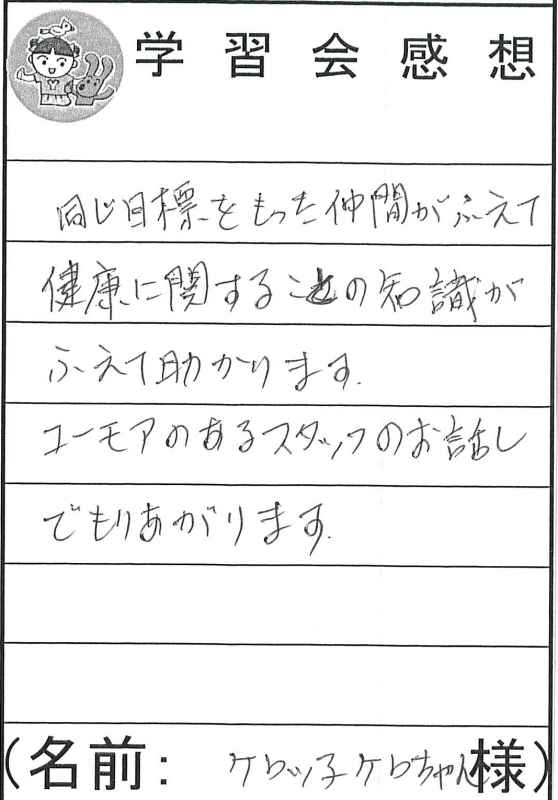 学習会感想
同じ目標をもった仲間がふえて
健康に関することの知識が
ふえて助かります.
ユーモアのあるスタッフのお話し
でもりあがります.
(名前: ケロッ子ケロちゃん様)